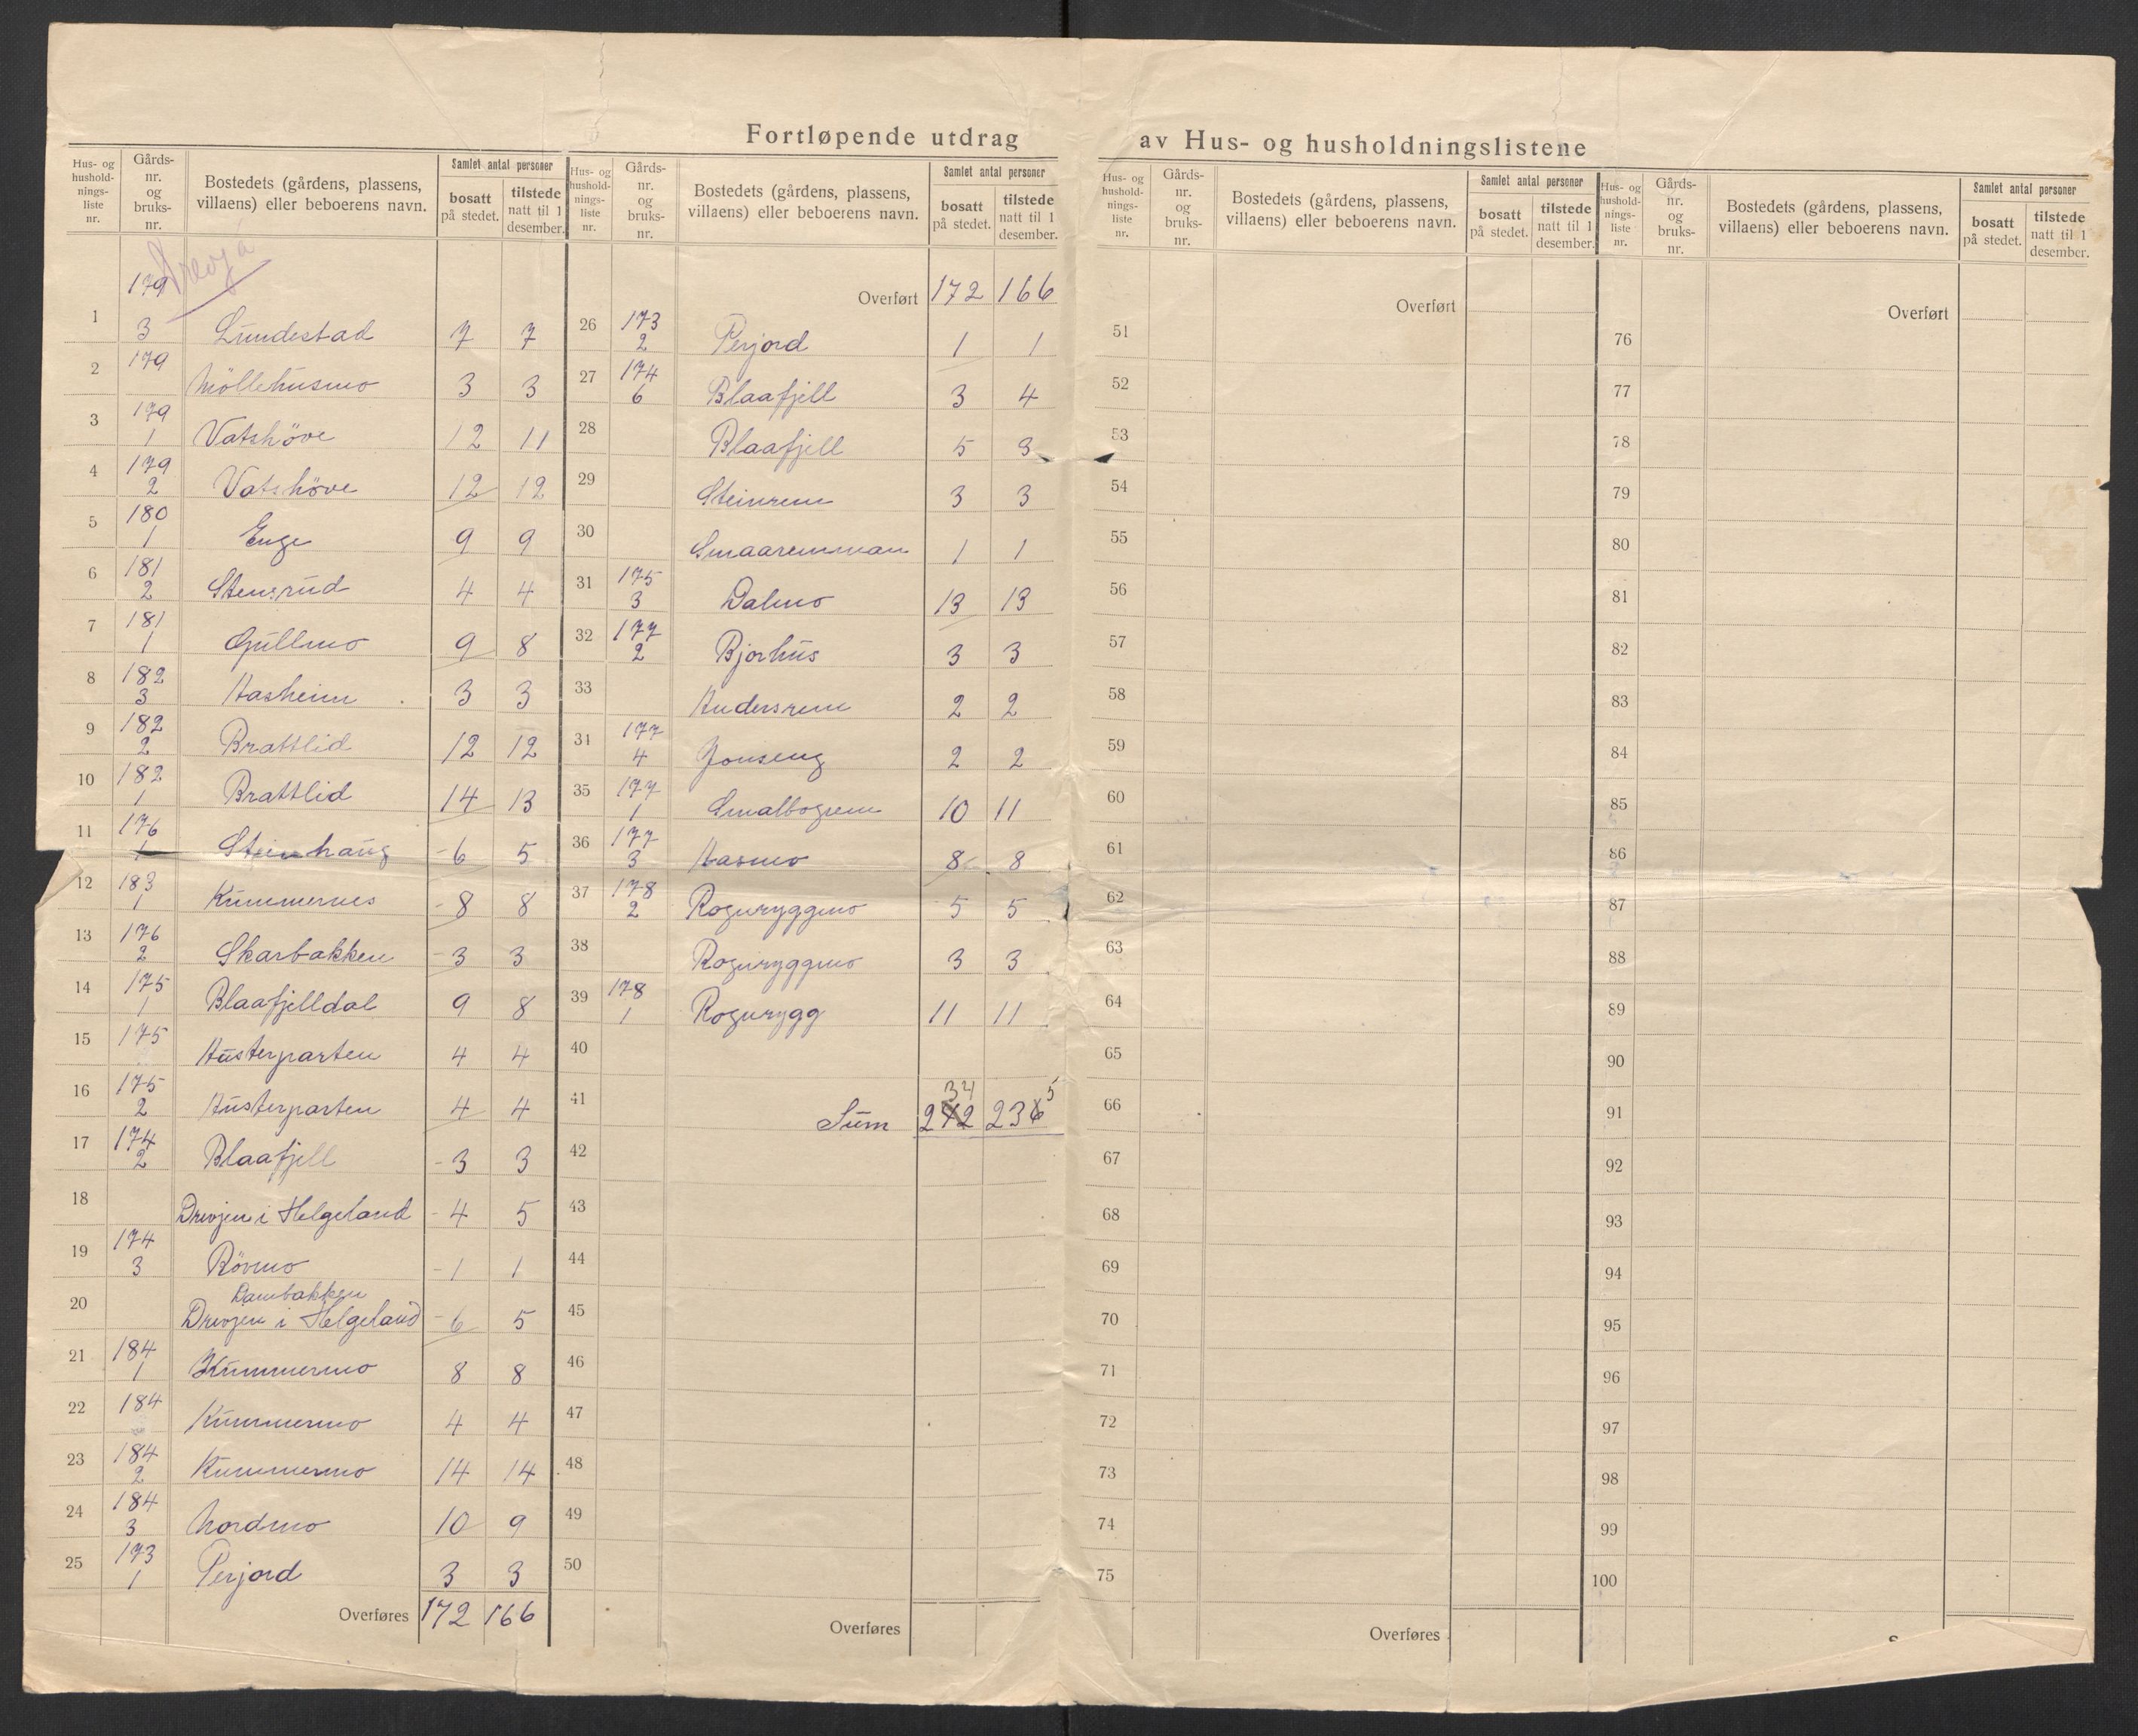 Fortløpende utdrag av Hus- og husholdningslistene
Hus- og husholdnings-liste nr. Gårds-nr. og bruks-nr. Bostedets (gårdens, plassens, villaens) eller beboerens navn. Samlet antal personer bosatt på stedet. tilstede natt til 1 desember.
Drevja
1 179 3 Lundestad 7 7
2 179 Möllehusmo 3 3
3 179 1 Vatshöve 12 11
4 179 2 Vatshöve 12 12
5 180 1 Enge 9 9
6 181 2 Stensrud 4 4
7 181 1 Gullmo 9 8
8 182 3 Aasheim 3 3
9 182 2 Brattlid 12 12
10 182 1 Brattlid 14 13
11 176 1 Steinhaug 6 5
12 183 1 Kummernes 8 8
13 176 2 Skarbakken 3 3
14 175 1 Blaafjelldal 9 8
15 175 Austerparten 4 4
16 175 2 Austerparten 4 4
17 174 2 Blaafjell 3 3
18 Drevjen i Helgeland 4 5
19 174 3 Rövmo 1 1
Dambakken
20 Drevjen i Helgeland 6 5
21 184 1 Kummermo 8 8
22 184 Kummermo 4 4
23 184 2 Kummermo 14 14
24 184 3 Nordmo 10 9
25 173 1 Perjord 3 3
Overføres 172 166
Hus- og husholdnings-liste nr. Gårds-nr. og bruks-nr. Bostedets (gårdens, plassens, villaens) eller beboerens navn. Samlet antal personer bosatt på stedet. tilstede natt til 1 desember.
Overført 172 166
26 173 2 Perjord 1 1
27 174 6 Blaafjell 3 4
28 Blaafjell 5 3
29 Steinrem 3 3
30 Smaaremman 1 1
31 175 3 Dalmo 13 13
32 177 2 Bjorhus 3 3
33 Andersrem 2 2
31 177 4 Jonseng 2 2
35 177 1 Smalbogrem 10 11
36 177 3 Aasmo 8 8
37 178 2 Rognryggmo 5 5
38 Rognryggmo 3 3
39 178 1 Rognrygg 11 11
40
34 5
41 Sum 242 236
42
43
44
45
46
47
48
49
50
Overføres
Hus- og husholdnings-liste nr. Gårds-nr. og bruks-nr. Bostedets (gårdens, plassens, villaens) eller beboerens navn. Samlet antal personer bosatt på stedet. tilstede natt til 1 desember.
Overført
51
52
53
54
55
56
57
58
59
60
61
62
63
64
65
66
67
68
69
70
71
72
73
74
75
Overføres
Hus- og husholdnings-liste nr. Gårds-nr. og bruks-nr. Bostedets (gårdens, plassens, villaens) eller beboerens navn. Samlet antal personer bosatt på stedet. tilstede natt til 1 desember.
Overført
76
77
78
79
80
81
82
83
84
85
86
87
88
89
90
91
92
93
94
95
96
97
98
99
100